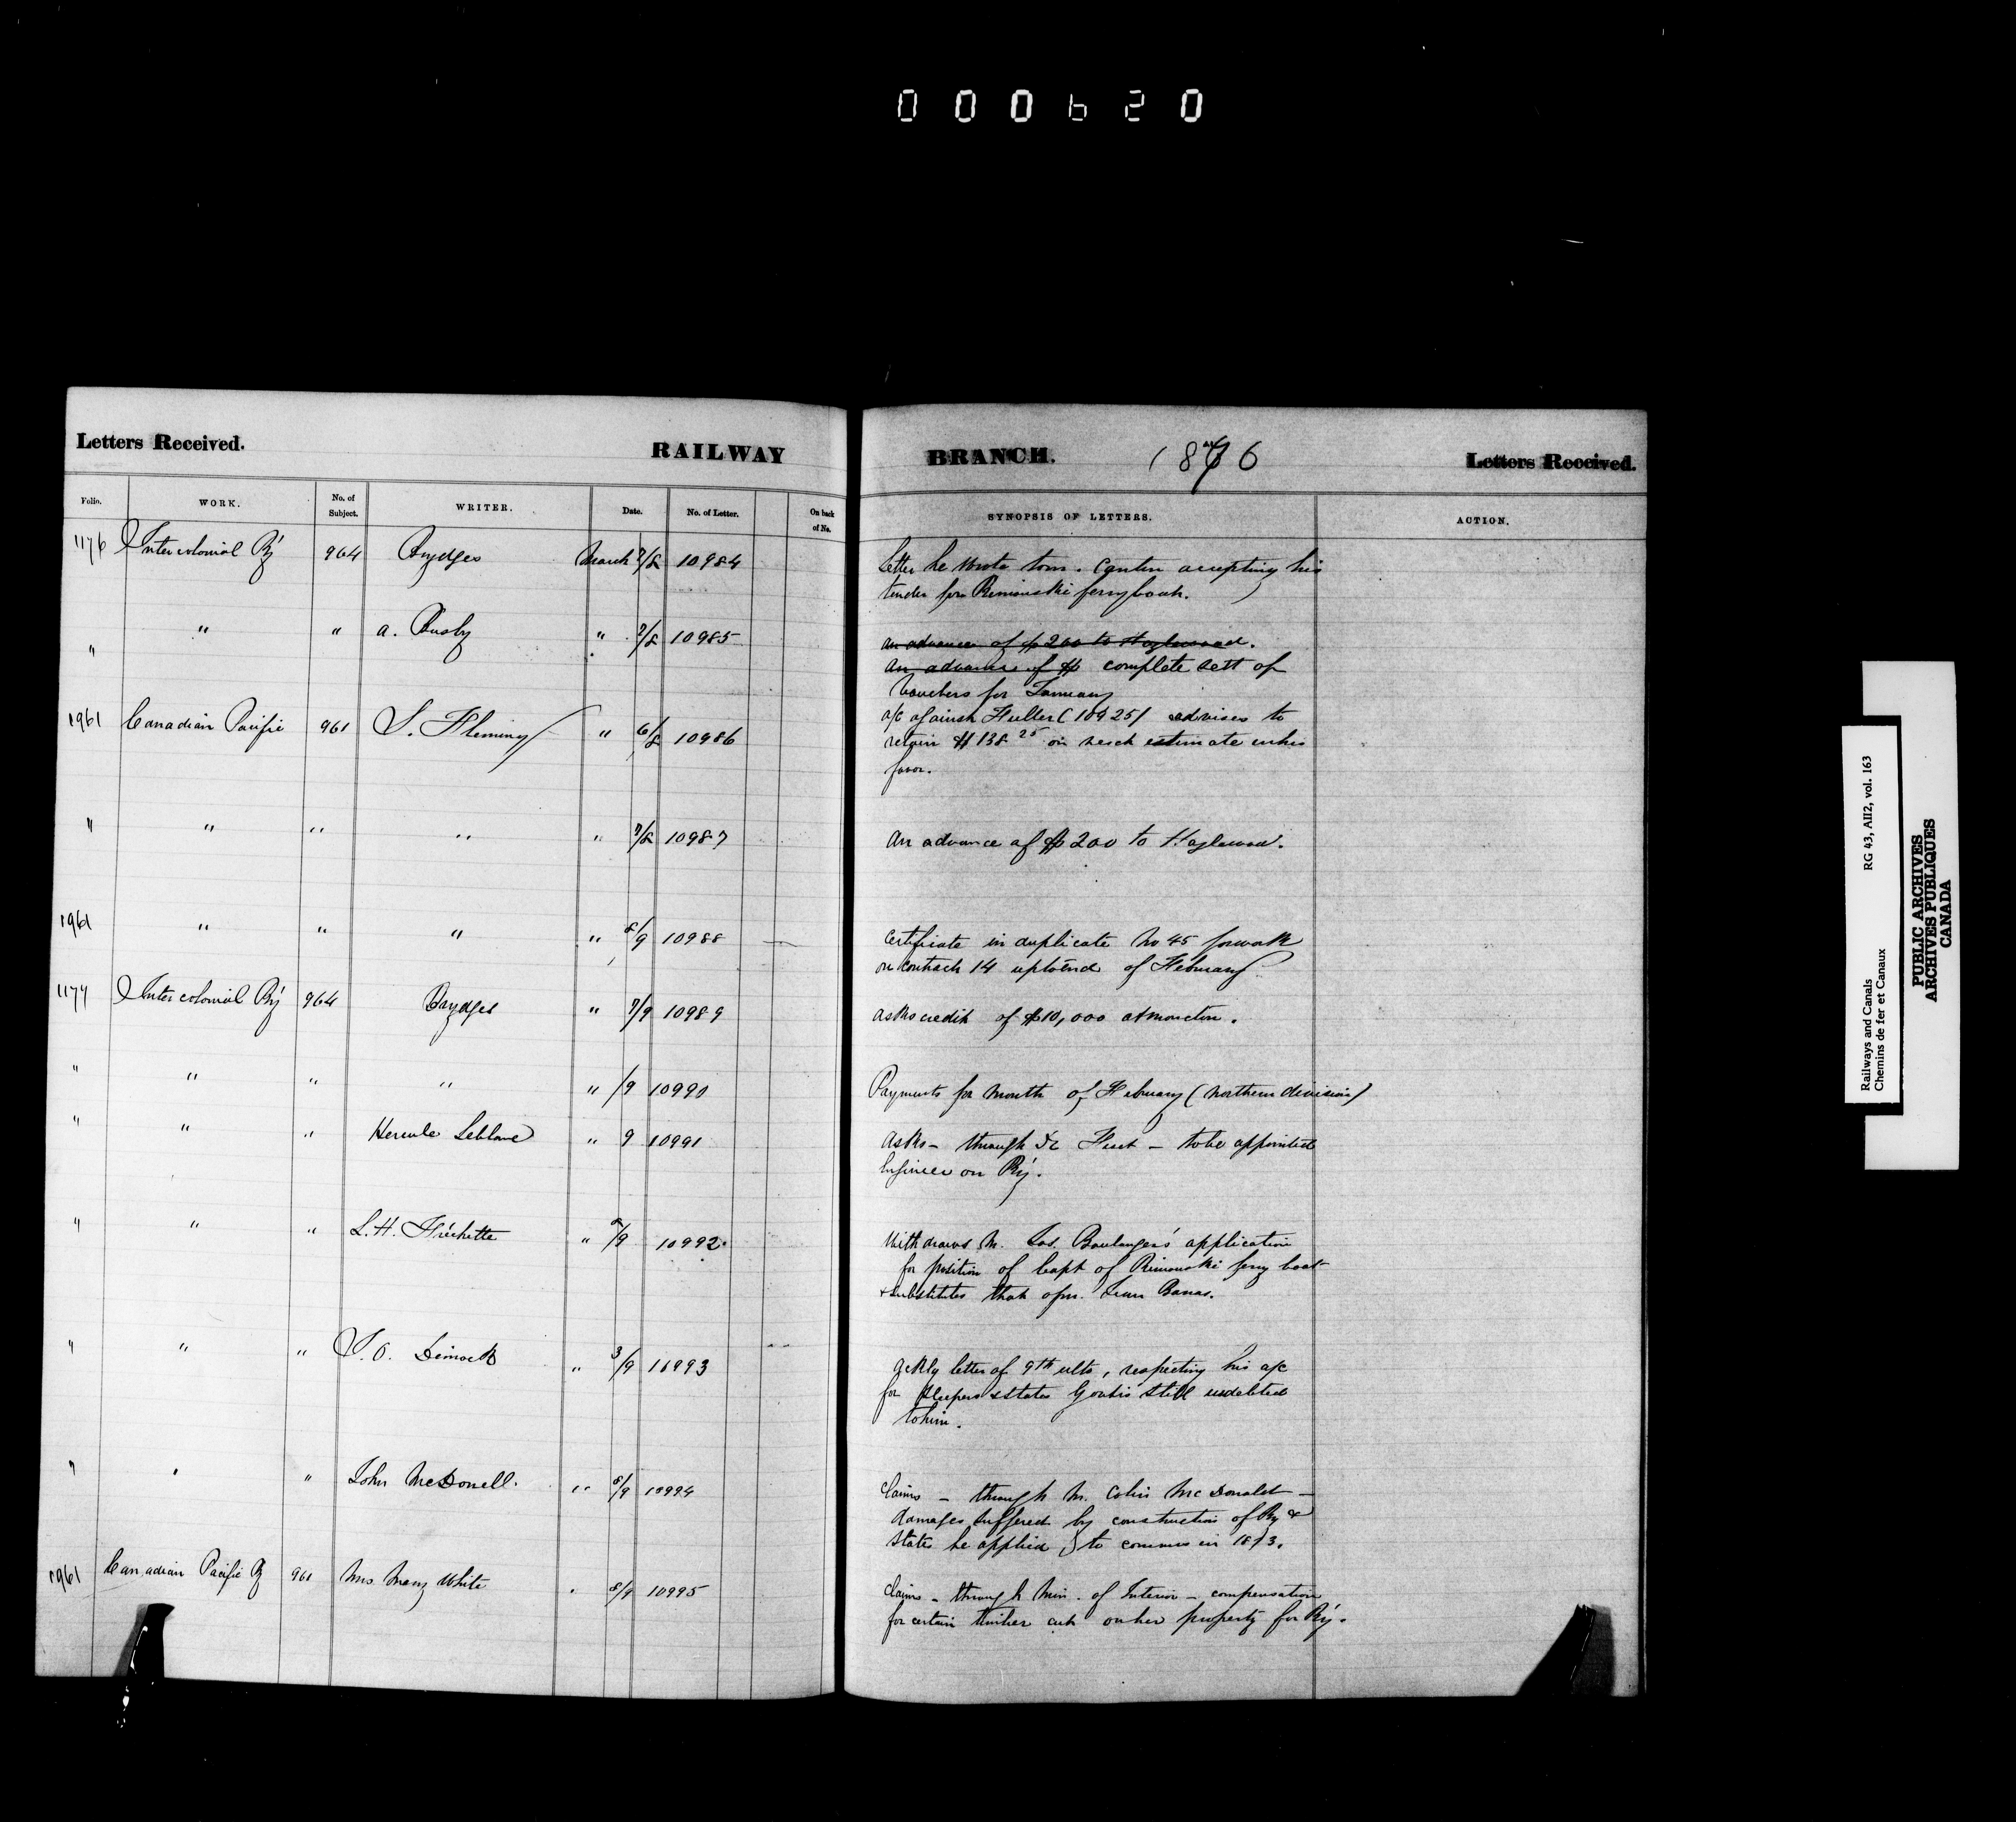 000620
Letters Received. RAILWAY BRANCH. 1876 Letters Received.
Folio. WORK. No. of Subject. WRITER. Date. No. of Letter. On back of No. SYNOPSIS OF LETTERS. ACTION.
1176 Intercolonial Ry 964 Brydges March 7/8 10984 Letter he wrote to M. Cantin accepting his
tender for Rimouski ferry boat.
" " " A. Busby " 7/8 10985 An advance of $200 to Hazlewood.
An advance of $ complete sett of
Vouchers for January
1961 Canadian Pacific 961 S. Fleming " 6/8 10986 a/c against Fuller (10925) advises to
retain $138 25 on next estimate in his
favor.
" " " " " 7/8 10987 An advance of $200 to Hazlewood.
1961 " " " " 8/9 10988 Certificate in duplicate No 45 for work
on contract 14 up to end of February.
1177 Intercolonial Ry 964 Brydges " 7/9 10989 Asks credit of $10,000 at Moncton.
" " " " " /9 10990 Payments for month of February (northern division)
" " " Hercule Leblanc " 9 10991 Asks - through Dr Fiset - to be appointed
Engineer on Ry.
" " " L.H. Fréchette " 8/9 10992. Withdraws M. Jos. Boulanger's application
for position of Capt of Rimouski ferry boat
& substitutes that of M.
" " " Dimock " 3/9 10993 letter of 9th ulto, respecting his a/c
for sleepers & states Govt is still indebted
to him.
" " " John McDonell. " 8/9 10994 Claims - through M. Colin McDonald -
damages suffered by construction of Ry &
states he applied to in 1873.
1961 Canadian Pacific Ry 961 Mrs Mary White " 8/9 10995 Claims - through Min. of Interior - compensation
for certain timber cut on her property for Ry.
Railways and Canals RG 43, AII2, vol. 163
Chemins de fer et Canaux
PUBLIC ARCHIVES
ARCHIVES PUBLIQUES
CANADA